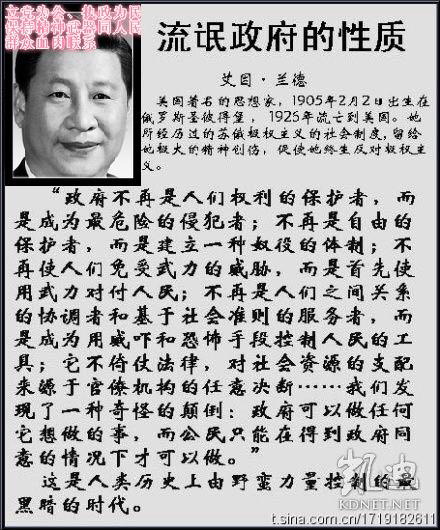 立党为公、执政为民
保持精神武器同人民
群众血肉联系
流氓政府的性质
艾因·兰德
美国著名的思想家，1905年2月2日出生在
俄罗斯圣彼得堡，1925年流亡到美国。她
所经历过的苏俄极权主义的社会制度，留给
她极大的精神创伤，促使她终生反对极权主
义。
“政府不再是人们权利的保护者，而
是成为最危险的侵犯者；不再是自由的
保护者，而是建立一种奴役的体制；不
再使人们免受武力的威胁，而是首先使
用武力对付人民；不再是人们之间关系
的协调者和基于社会准则的服务者，而
是成为用威吓和恐怖手段控制人民的工
具；它不倚仗法律，对社会资源的支配
来源于官僚机构的任意决断……我们发
现了一种奇怪的颠倒：政府可以做任何
它想做的事，而公民只能在得到政府同
意的情况下才可以做。”
这是人类历史上由野蛮力量控制的最
黑暗的时代。
凯迪
KDNET.NET
t.sina.com.cn/1719182611